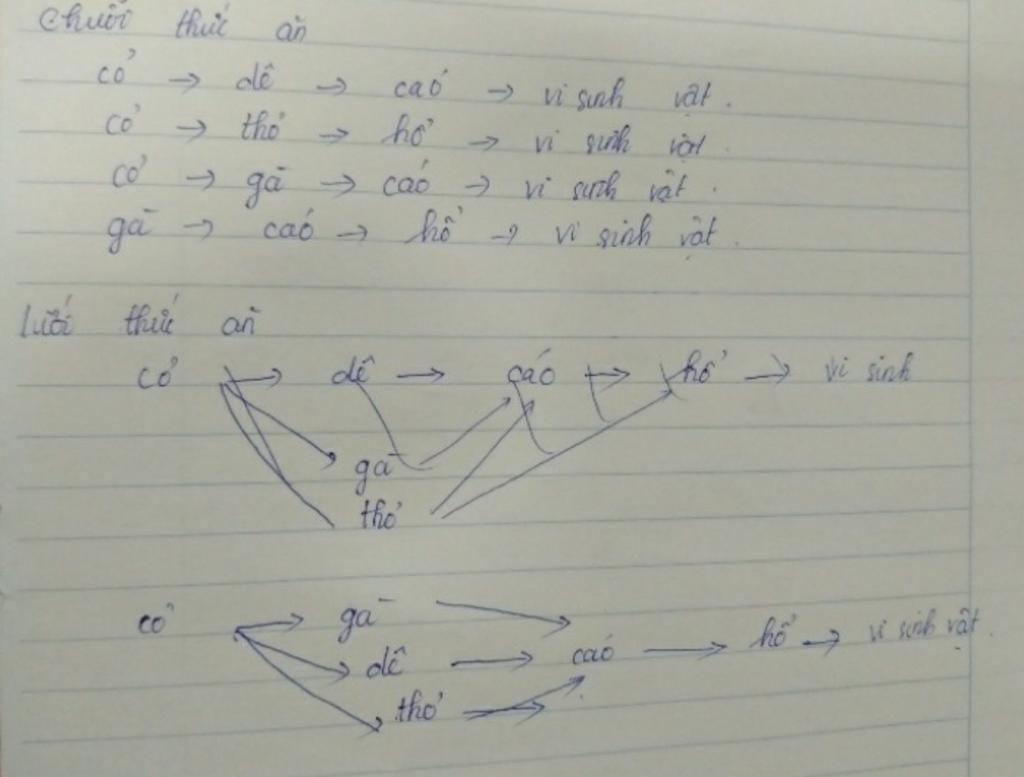 Chuỗi thức ăn
cỏ → dê → cáo → vi sinh vật.
cỏ → thỏ → hổ → vi sinh vật.
cỏ → gà → cáo → vi sinh vật.
gà → cáo → hổ → vi sinh vật.
lưới thức ăn
cỏ → dê → cáo → hổ → vi sinh
gà
thỏ
cỏ → gà
dê → cáo → hổ → vi sinh vật.
thỏ